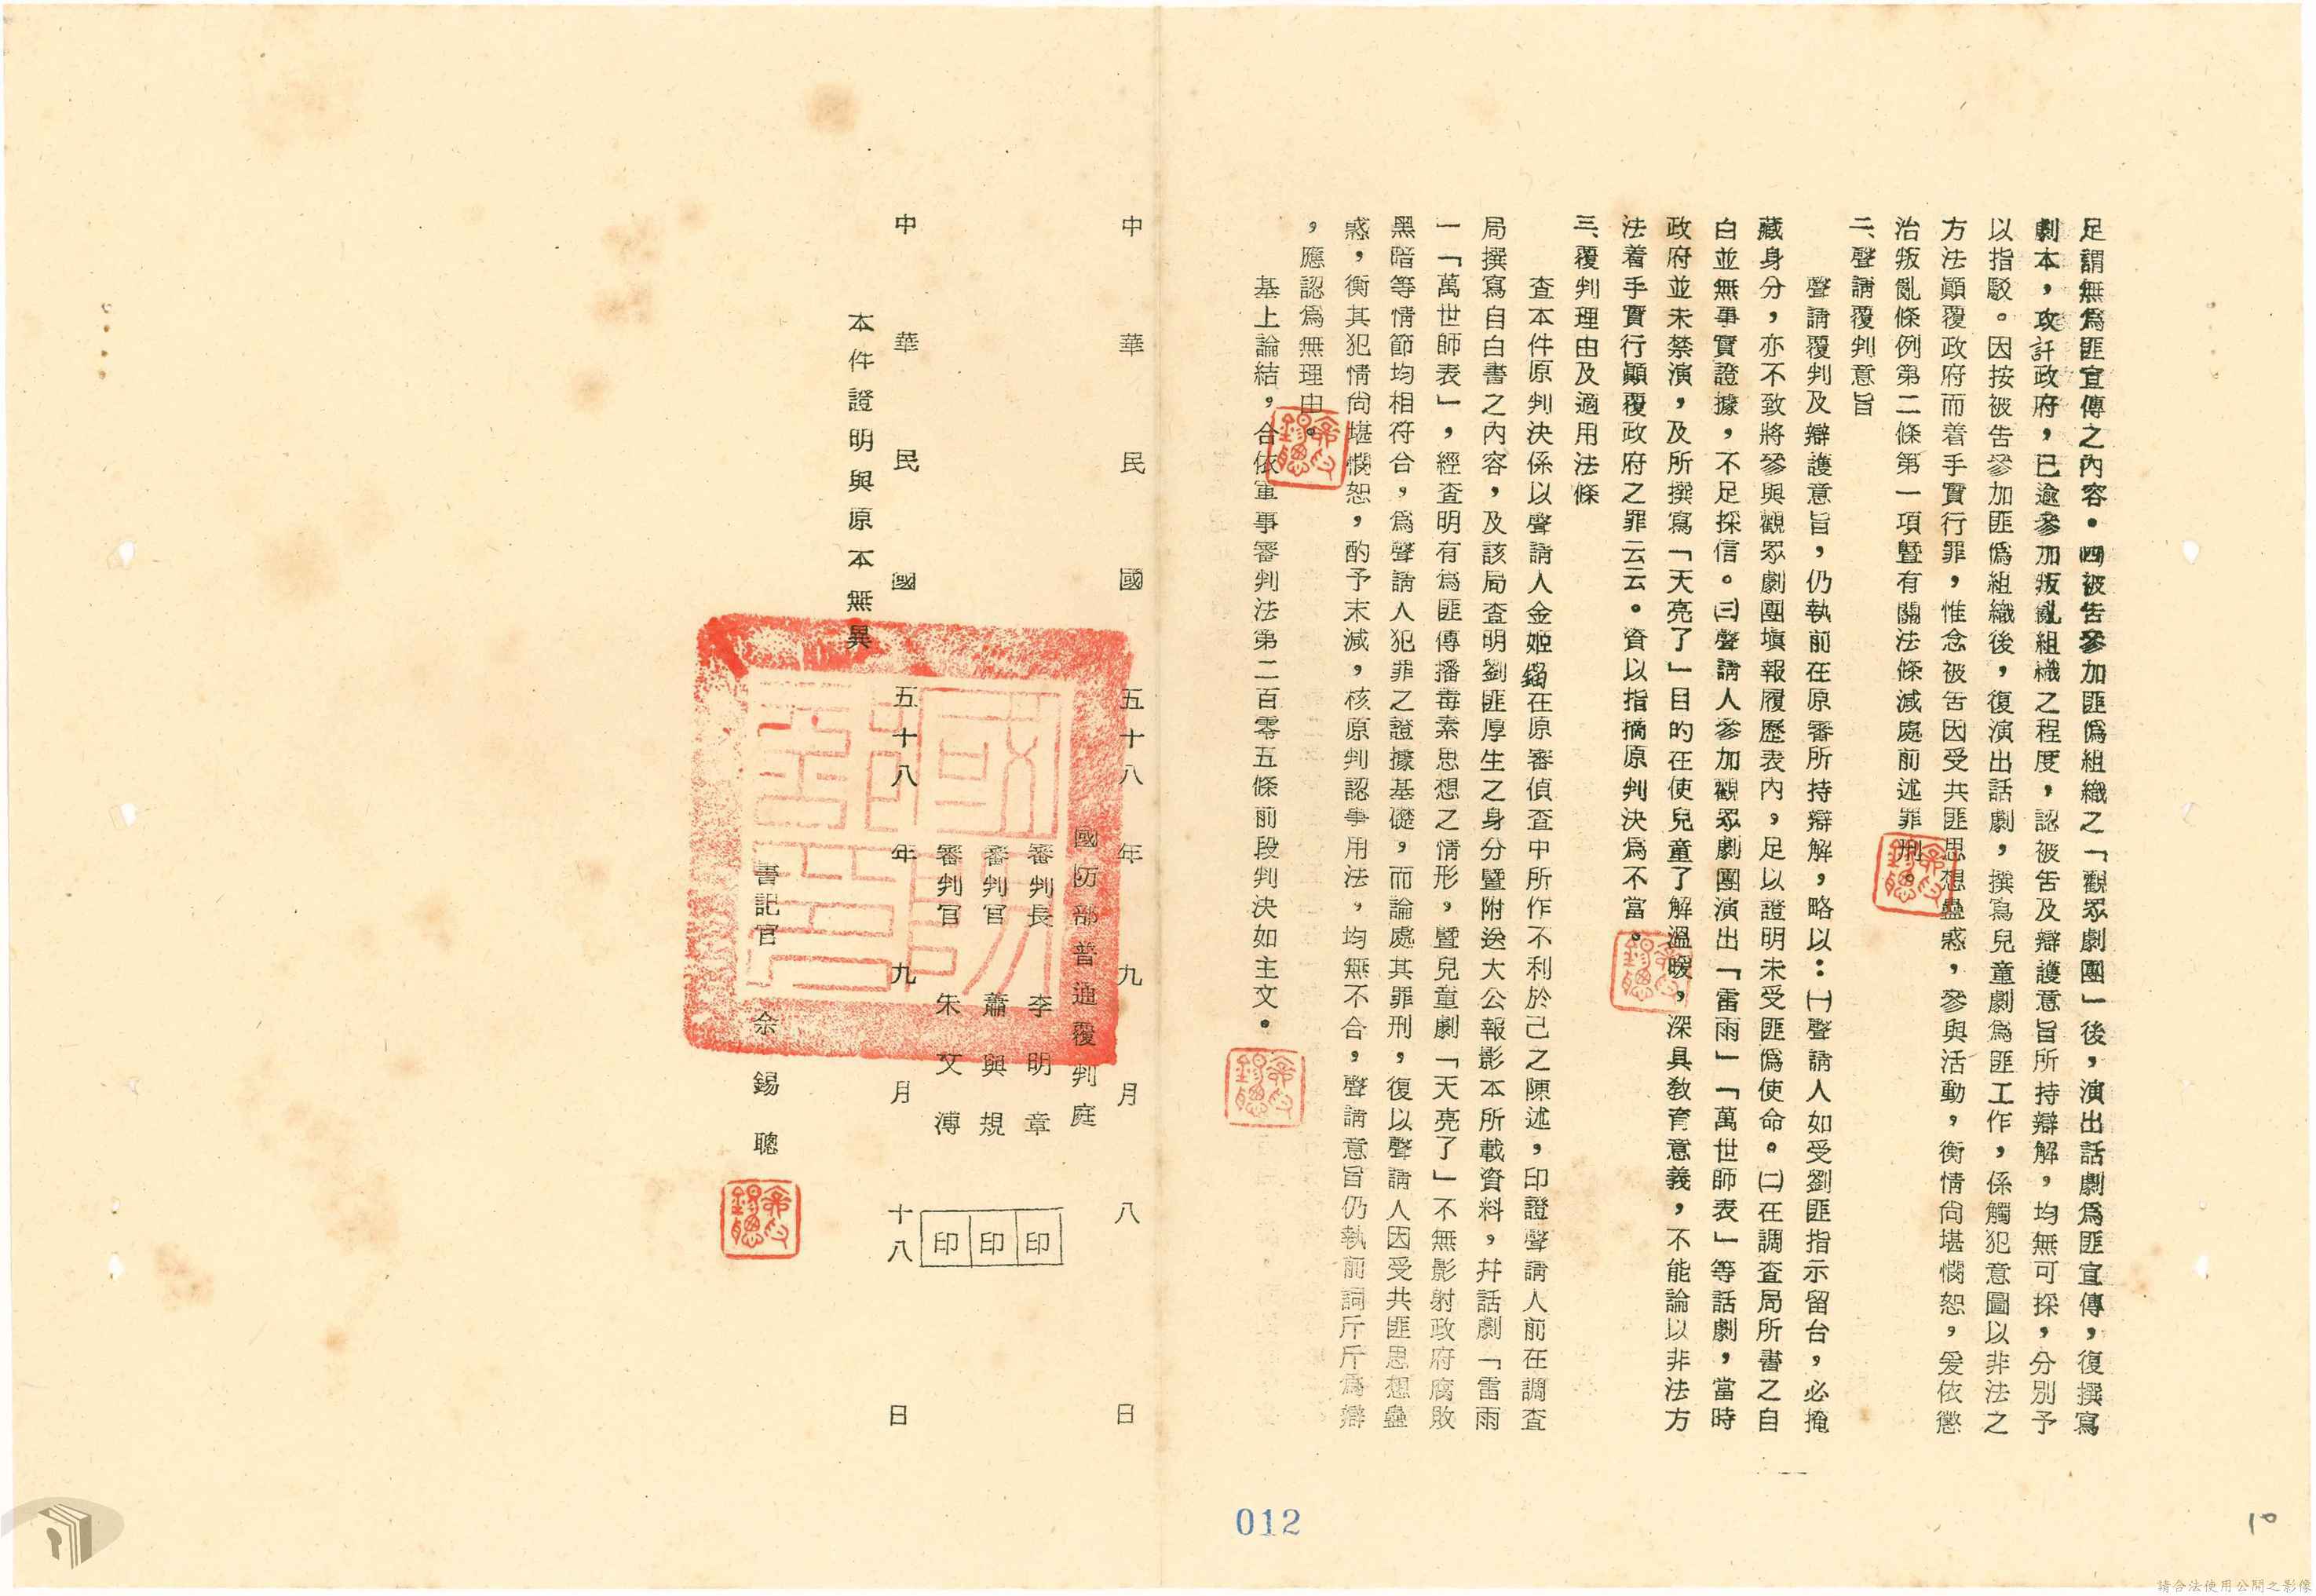 足謂無爲匪宣傳之內容。四被告參加匪僞組織之「觀眾劇團」後，演出話劇爲匪宣傳，復撰寫
劇本，攻訐政府，已逾參加叛亂組織之程度，認被告及辯護意旨所持辯解，均無可採，分別予
以指駁。因按被告參加匪僞組織後，復演出話劇，撰寫兒童劇爲匪工作，係觸犯意圖以非法之
方法顚覆政府而着手實行罪，惟念被告因受共匪思想蠱惑，參與活動，衡情尙堪憫恕，爰依懲
治叛亂條例第二條第一項暨有關法條減處前述罪刑。
二、聲請覆判意旨
聲請覆判及辯護意旨，仍執前在原審所持辯解，略以：㈠聲請人如受劉匪指示留台，必掩
藏身分，亦不致將參與觀眾劇團塡報履歷表內，足以證明未受匪僞使命。㈡在調查局所書之自
白並無事實證據，不足採信。㈢聲請人參加觀眾劇團演出「雷雨」「萬世師表」等話劇，當時
政府並未禁演，及所撰寫「天亮了」目的在使兒童了解溫暖，深具敎育意義，不能論以非法方
法着手實行顚覆政府之罪云云。資以指摘原判決爲不當。
三、覆判理由及適用法條
查本件原判決係以聲請人金姬鎦在原審偵查中所作不利於己之陳述，印證聲請人前在調查
局撰寫自白書之內容，及該局查明劉匪厚生之身分暨附送大公報影本所載資料，幷話劇「雷雨
一「萬世師表」，經查明有爲匪傳播毒素思想之情形，暨兒童劇「天亮了」不無影射政府腐敗
黑暗等情節均相符合，爲聲請人犯罪之證據基礎，而論處其罪刑，復以聲請人因受共匪思想蠱
惑，衡其犯情尙堪憫恕，酌予末減，核原判認事用法，均無不合，聲請意旨仍執前詞斤斤爲辯
，應認爲無理由。
基上論結，合依軍事審判法第二百零五條前段判決如主文。
中華民國五十八年九月八日
國防部普通覆判庭
審判長 李明章 印
審判官 蕭與規 印
審判官 朱文溥 印
中華民國五十八年九月十八日
本件證明與原本無異
書記官 余錫聰
012
10
請合法使用公開之影像